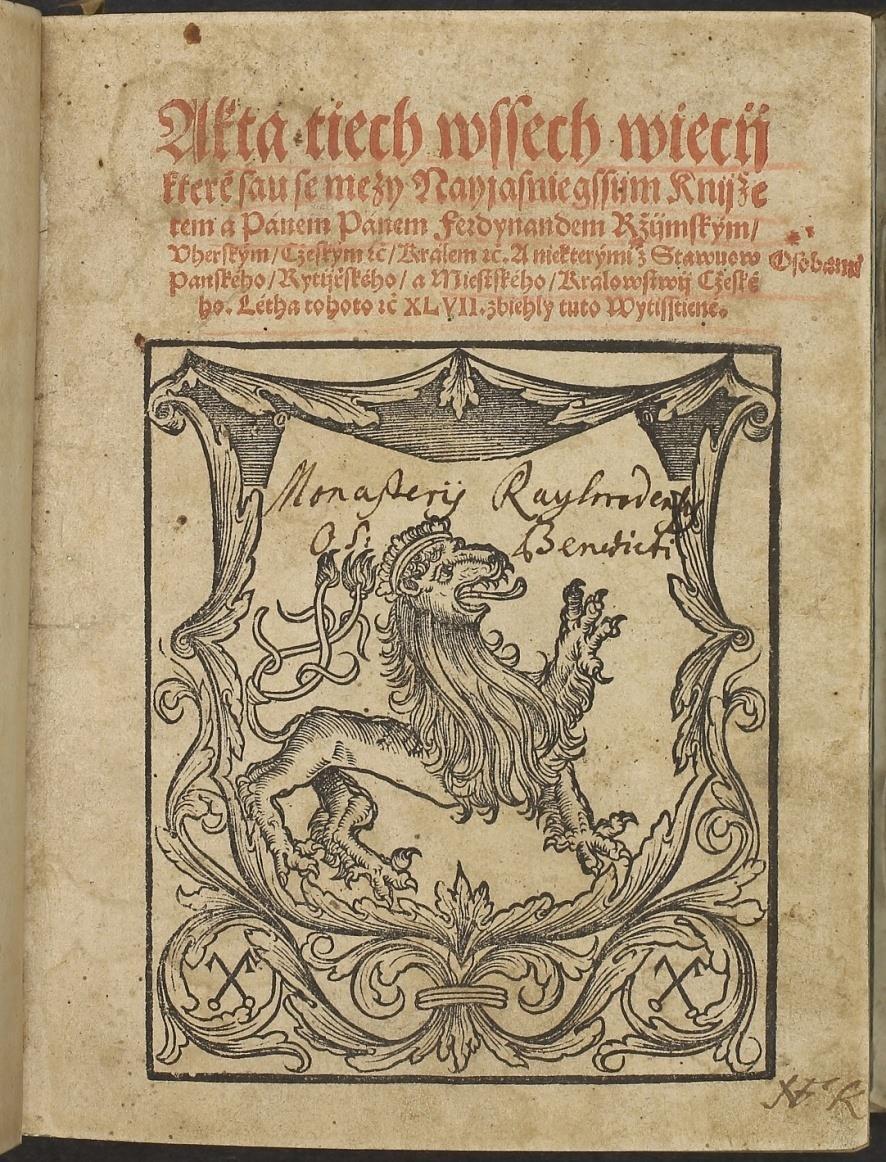 Akta tiech wssech wiecij
kteréž sau se mezy Nayjasniegssijm Knijže
tem a Pánem Pánem Ferdynandem Ržijmským/
Vherským/ Cžeským ꝛč/ Králem ꝛč. A niekterými z Stawuow Osobami
Panského/ Rytijřského/ a Miestského/ Králowstwij Cžeské
ho. Létha tohoto ꝛč XLVII. zbiehly tuto Wytisstiené.
Monasterij Rayhradensis
O. S. Benedicti